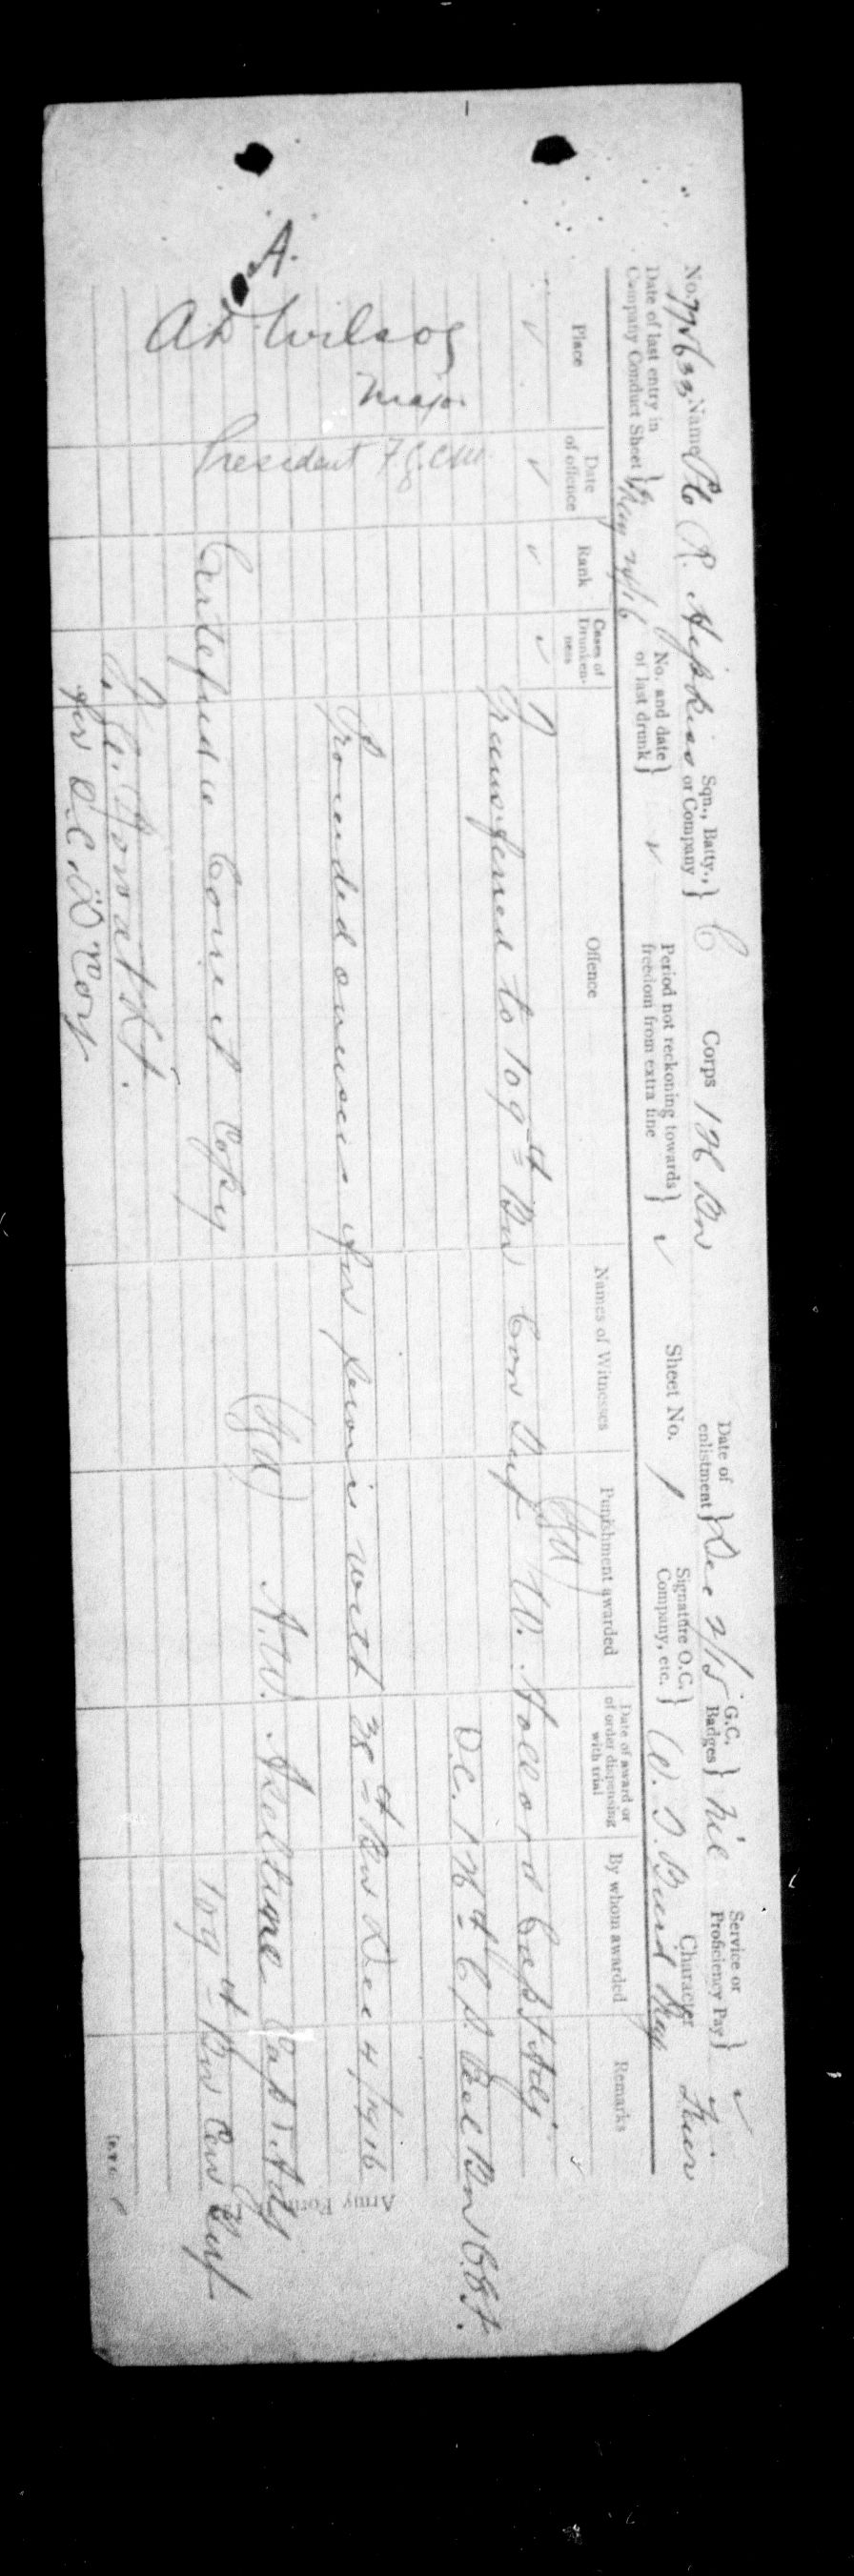 No. 775633 Name Pte R. Hipkins Sqn., Batty., or Company } C Corps 126 Bn Date of enlistment } Dec 2/15 G.C. Badges } Nil Service or Proficiency Pay } ✓
Date of last entry in Company Conduct Sheet } No. and date of last drunk } ✓ Period not reckoning towards freedom from extra fine } ✓ Sheet No. 1 Signature O.C. Company, etc. } Character
Place Date of offence Rank Cases of Drunkenness Offence Names of Witnesses Punishment awarded Date of award or of order dispensing with trial By whom awarded Remarks
✓ ✓ ✓ ✓ (Sgd)
Transferred to 109th Bn Can Inf W. Capt Adj
O.C. 126th Peel Bn C.E.F.
Proceeded overseas for service with 38th Bn Dec 4/1916
(Sgd) A.W. Capt Adj
Certified a Correct Copy 109th Bn Can Inf
Lt.
for O.C. "D" Coy
A.
AD. Wilson
Major
President F.G.C.M.
Army Form